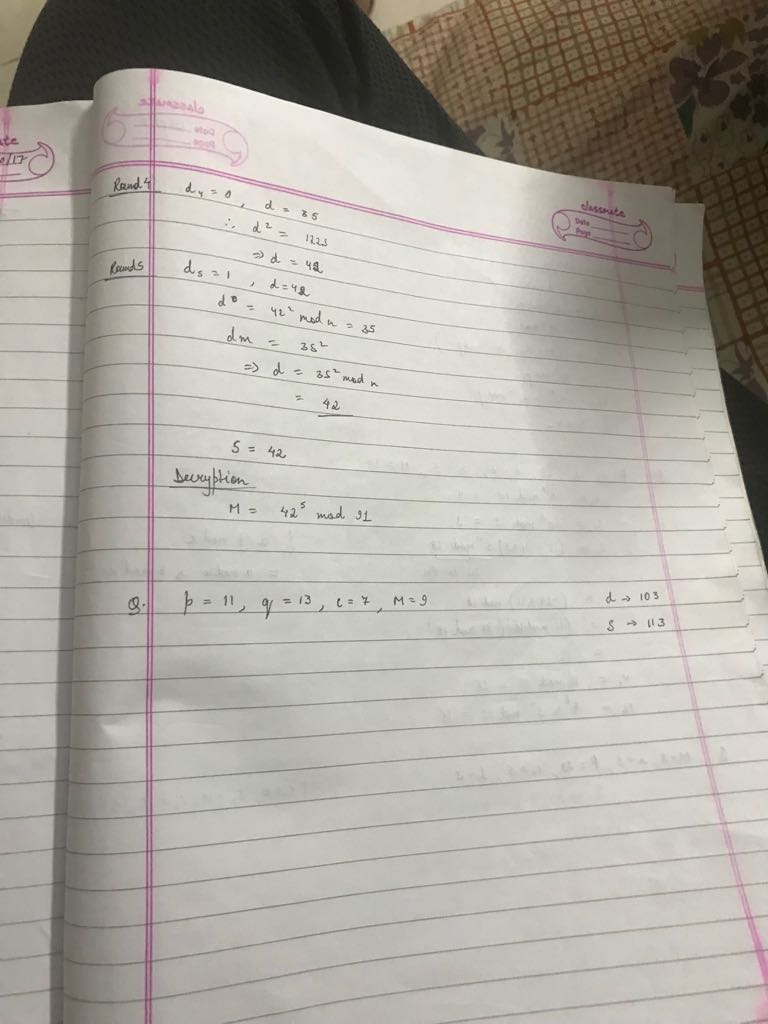 classmate
Date
Page
Round 4 d₄ = 0, d = 35
∴ d² = 1225
⇒ d = 42
Round 5 d₅ = 1, d = 42
= 42² mod n = 35
dm = 35²
⇒ d = 35² mod n
= 42
S = 42
Decryption
M = 42⁵ mod 91
Q. p = 11, q = 13, e = 7, M = 9
d → 103
S → 113